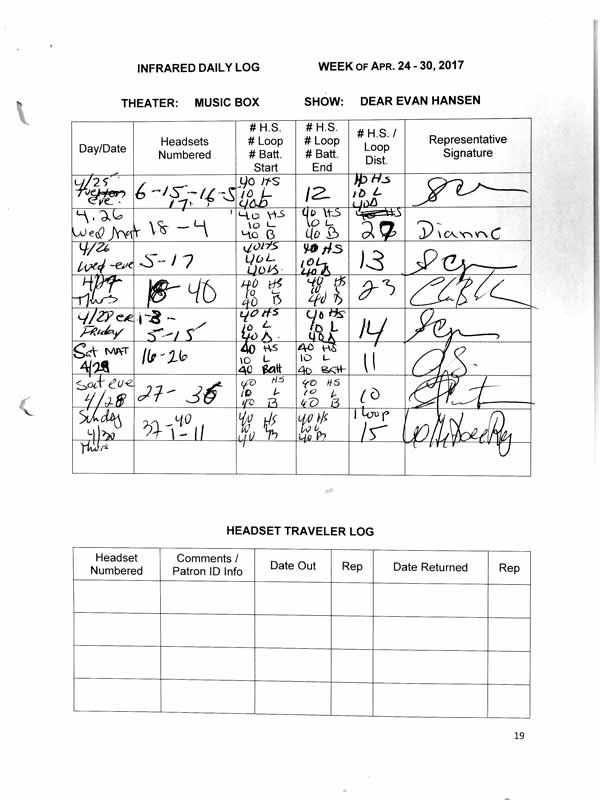 INFRARED DAILY LOG WEEK OF APR. 24 - 30, 2017
THEATER: MUSIC BOX SHOW: DEAR EVAN HANSEN
Day/Date Headsets Numbered # H.S. # Loop # Batt. Start # H.S. # Loop # Batt. End # H.S. / Loop Dist. Representative Signature
4/25 eve. 6-15-16-5 17. 40 HS 10 L 40 B 12 10 L
4.26 Wed Mat 18-4 40 HS 10 L 40 B 40 HS 10 L 40 B Dianne
4/26 Wed-eve 5-17 40 HS 40 HS 10 L 40 B 13
4/27 Thurs 18-40 40 HS 10 L 40 B 40 HS 10 L 40 B 23
4/28 eve Friday 1-3- 5-15 40 HS 10 L 40 B 40 HS 10 L 40 B 14
Sat MAT 4/29 16-26 40 HS 10 L 40 Batt 40 HS 10 L 40 Batt 11
Sat eve 4/28 27-36 40 HS 10 L 40 B 40 HS 10 L 40 B 10
Sunday 4/30 37-40 1-11 40 HS 10 L 40 B 40 HS 10 L 40 B 1 Loop 15
Thurs
HEADSET TRAVELER LOG
Headset Numbered Comments / Patron ID Info Date Out Rep Date Returned Rep
19